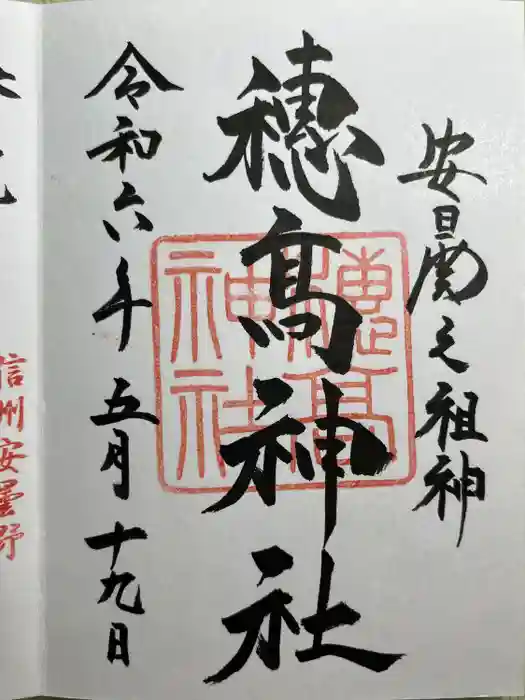 安曇之祖神
穂髙神社
穂高神社
令和六年五月十九日
信州安曇野